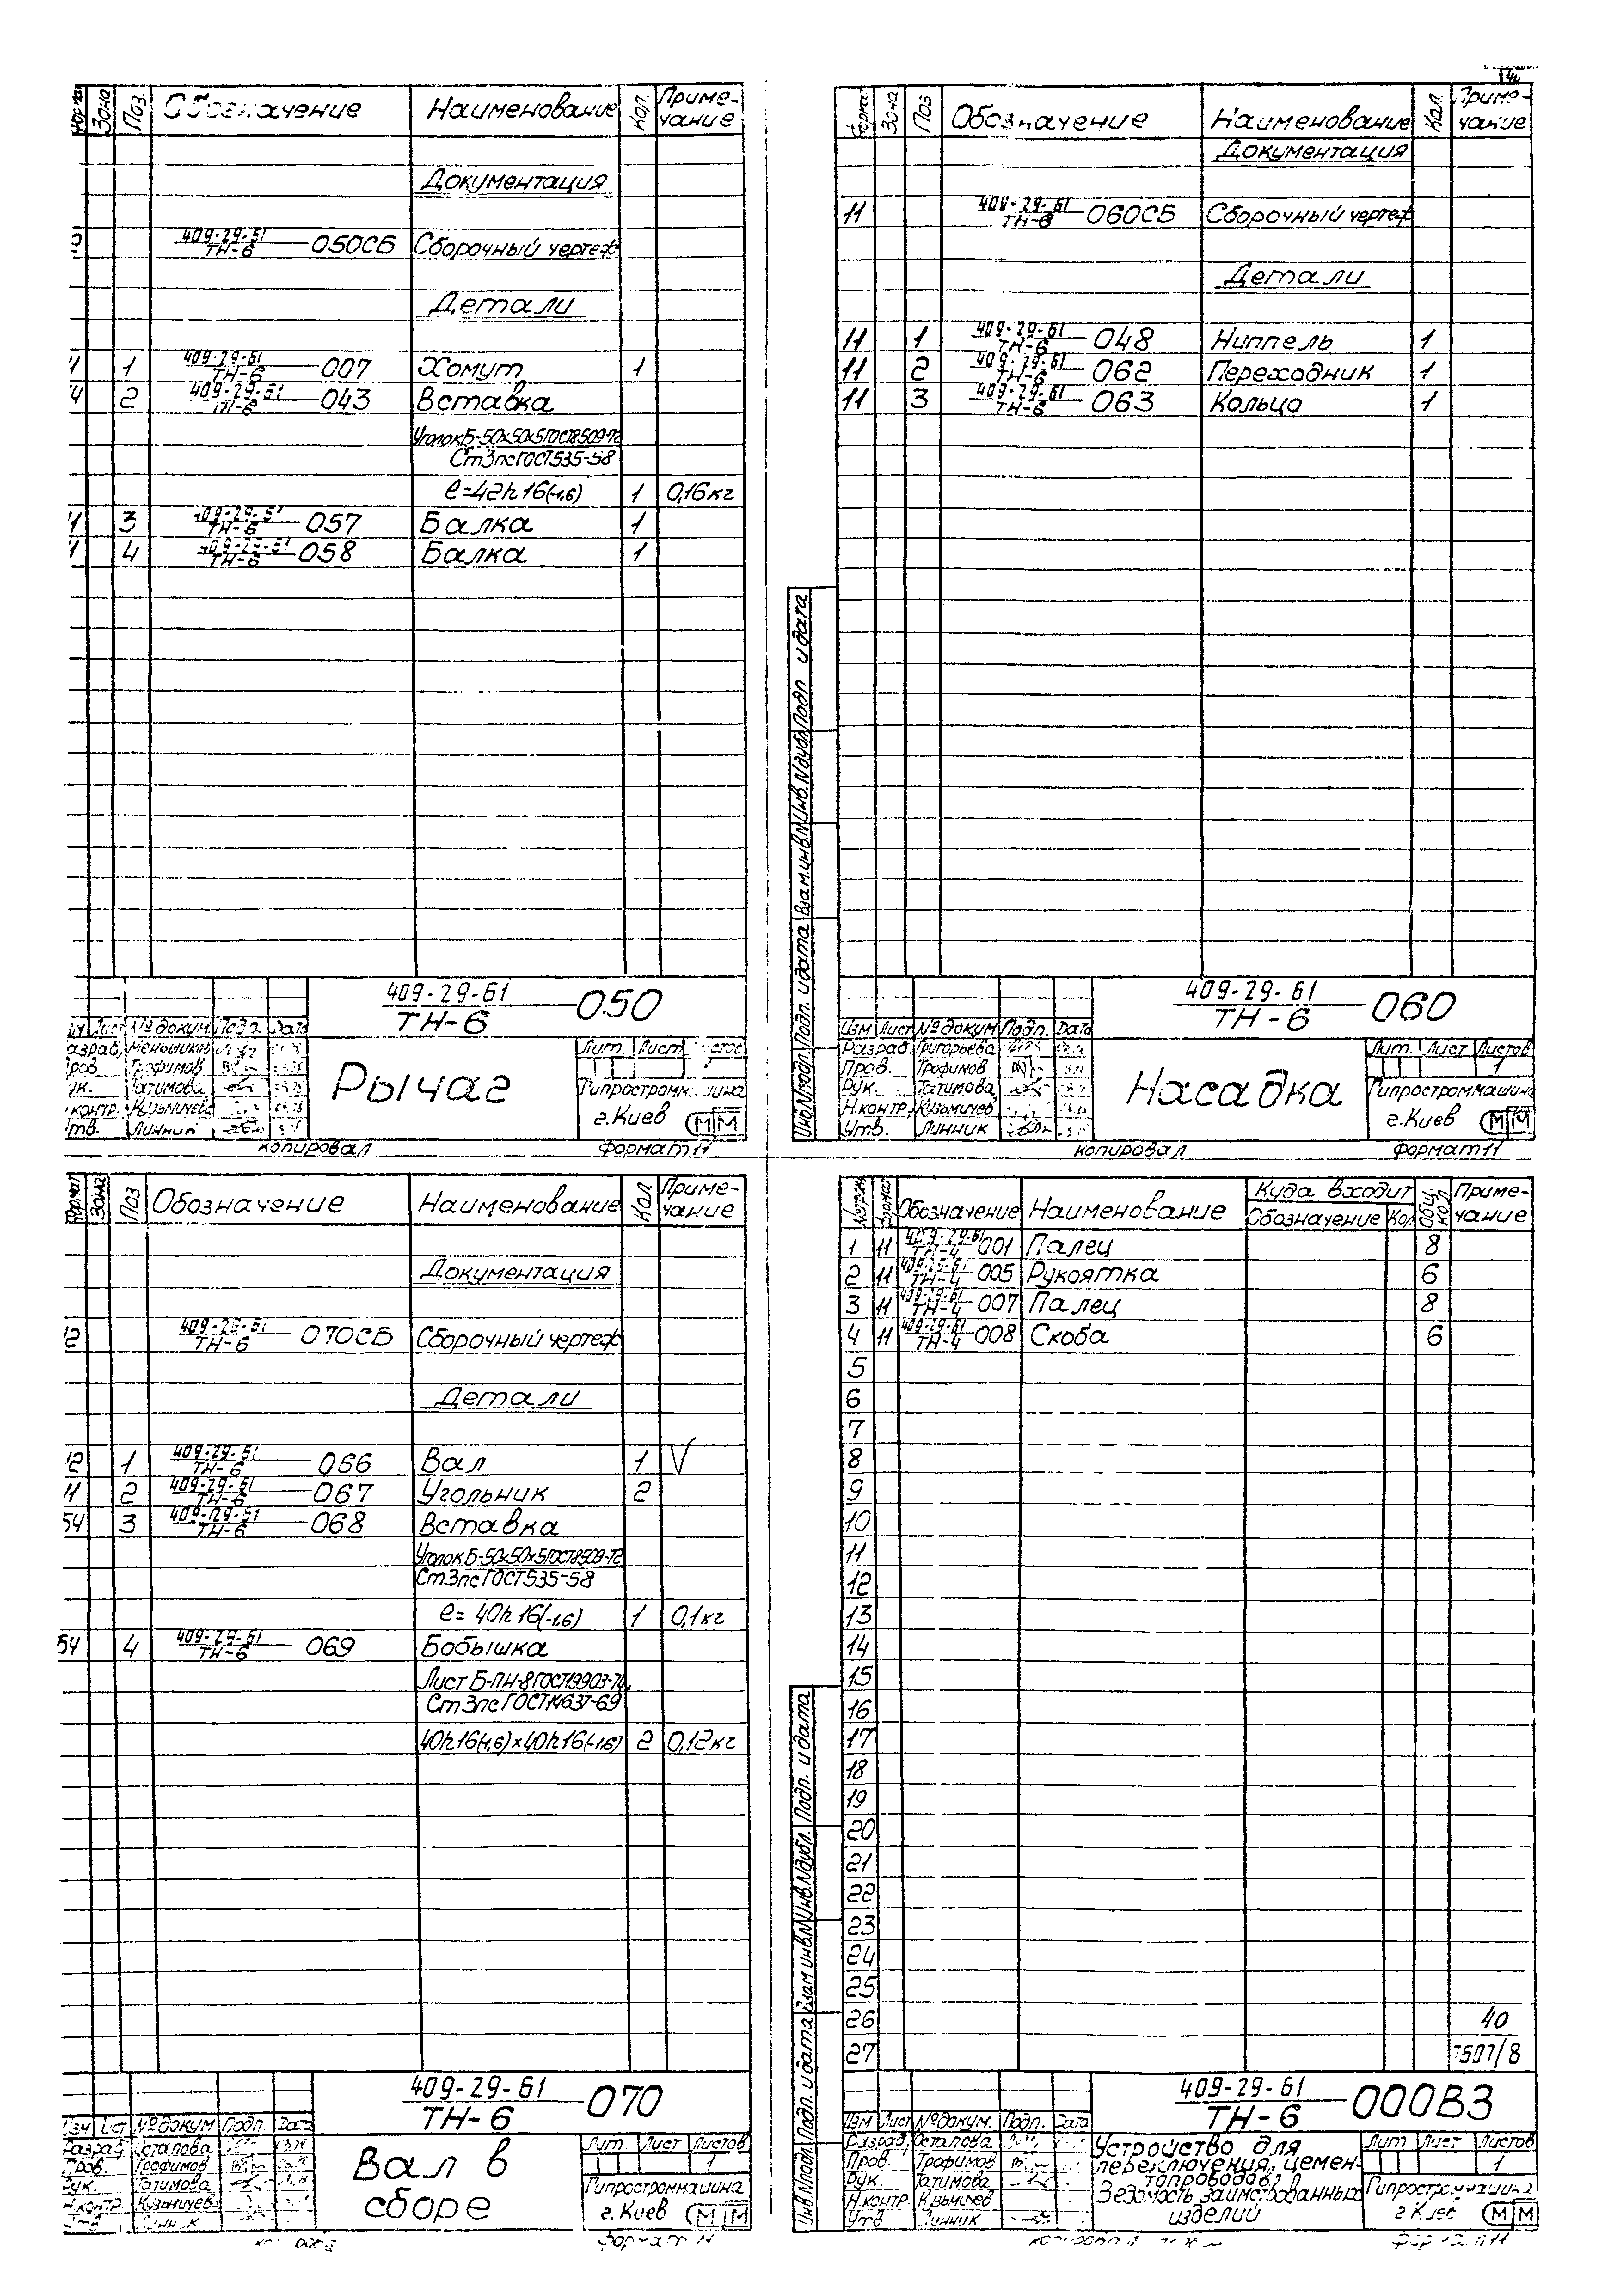 Зона Поз. Обозначение Наименование Кол. Приме-
чание
Документация
409-29-61
ТН-6 050СБ Сборочный чертеж
Детали
1 409-29-61
ТН-6 007 Хомут 1
2 409-29-61
ТН-6 043 Вставка
Уголок Б-50х50х5 ГОСТ8509-72
Ст3пс ГОСТ535-58
ℓ=42h16(-1,6) 1 0,16кг
3 409-29-61
ТН-6 057 Балка 1
4 409-29-61
ТН-6 058 Балка 1
409-29-61
ТН-6 050
Лист № докум. Подп. Дата
Разраб. Меньшиков
Пров. Трофимов
Рук. Татимова
Н.контр. Кузьмичев
Утв. Линник
Рычаг
Лит. Лист Листов
Гипростроммашина
г.Киев ММ
копировал Формат 11
Формат Зона Поз Обозначение Наименование Кол. Приме-
чание
Документация
11 409-29-61
ТН-6 060СБ Сборочный чертеж
Детали
11 1 409-29-61
ТН-6 048 Ниппель 1
11 2 409-29-61
ТН-6 062 Переходник 1
11 3 409-29-61
ТН-6 063 Кольцо 1
Инв.№подл. Подп. и дата Взам.инв.№ Инв.№дубл. Подп. и дата
409-29-61
ТН-6 060
Изм Лист № докум Подп. Дата
Разраб. Григорьева
Пров. Трофимов
Рук. Татимова
Н.контр. Кузьмичев
Утв. Линник
Насадка
Лит. Лист Листов
1
Гипростроммашина
г.Киев ММ
копировал Формат 11
Формат Зона Поз Обозначение Наименование Кол Приме-
чание
Документация
12 409-29-61
ТН-6 070СБ Сборочный чертеж
Детали
12 1 409-29-61
ТН-6 066 Вал 1 V
11 2 409-29-61
ТН-6 067 Угольник 2
54 3 409-29-61
ТН-6 068 Вставка
Уголок Б-50х50х5 ГОСТ8509-72
Ст3пс ГОСТ535-58
ℓ= 40h16(-1,6) 1 0,1кг
54 4 409-29-61
ТН-6 069 Бобышка
Лист Б-ПН-8 ГОСТ19903-74
Ст3пс ГОСТ14637-69
40h16(-1,6)х40h16(-1,6) 2 0,12кг
409-29-61
ТН-6 070
Изм Лист № докум Подп. Дата
Разраб. Осталова
Пров. Трофимов
Рук. Татимова
Н.контр. Кузьмичев
Линник
Вал в
сборе
Лит. Лист Листов
1
Гипростроммашина
г.Киев ММ
Формат 11
Формат Обозначение Наименование Куда входит Общ.
кол. Приме-
чание
Обозначение Кол
1 11 409-29-61
ТН-4 001 Палец 8
2 11 409-29-61
ТН-4 005 Рукоятка 6
3 11 409-29-61
ТН-4 007 Палец 8
4 11 409-29-61
ТН-4 008 Скоба 6
5
6
7
8
9
10
11
12
13
14
15
16
17
18
19
20
21
22
23
24
25
26 40
27 7507/8
Инв.№подл. Подп. и дата Взам инв.№ Инв.№дубл. Подп. и дата
409-29-61
ТН-6 000ВЗ
Изм Лист № докум. Подп. Дата
Разраб. Осталова
Пров. Трофимов
Рук. Татимова
Н.контр. Кузьмичев
Утв Линник
Устройство для
переключения цемен-
топроводов
Ведомость заимствованных
изделий
Лит Лист Листов
1
Гипростроммашина
г Киев ММ